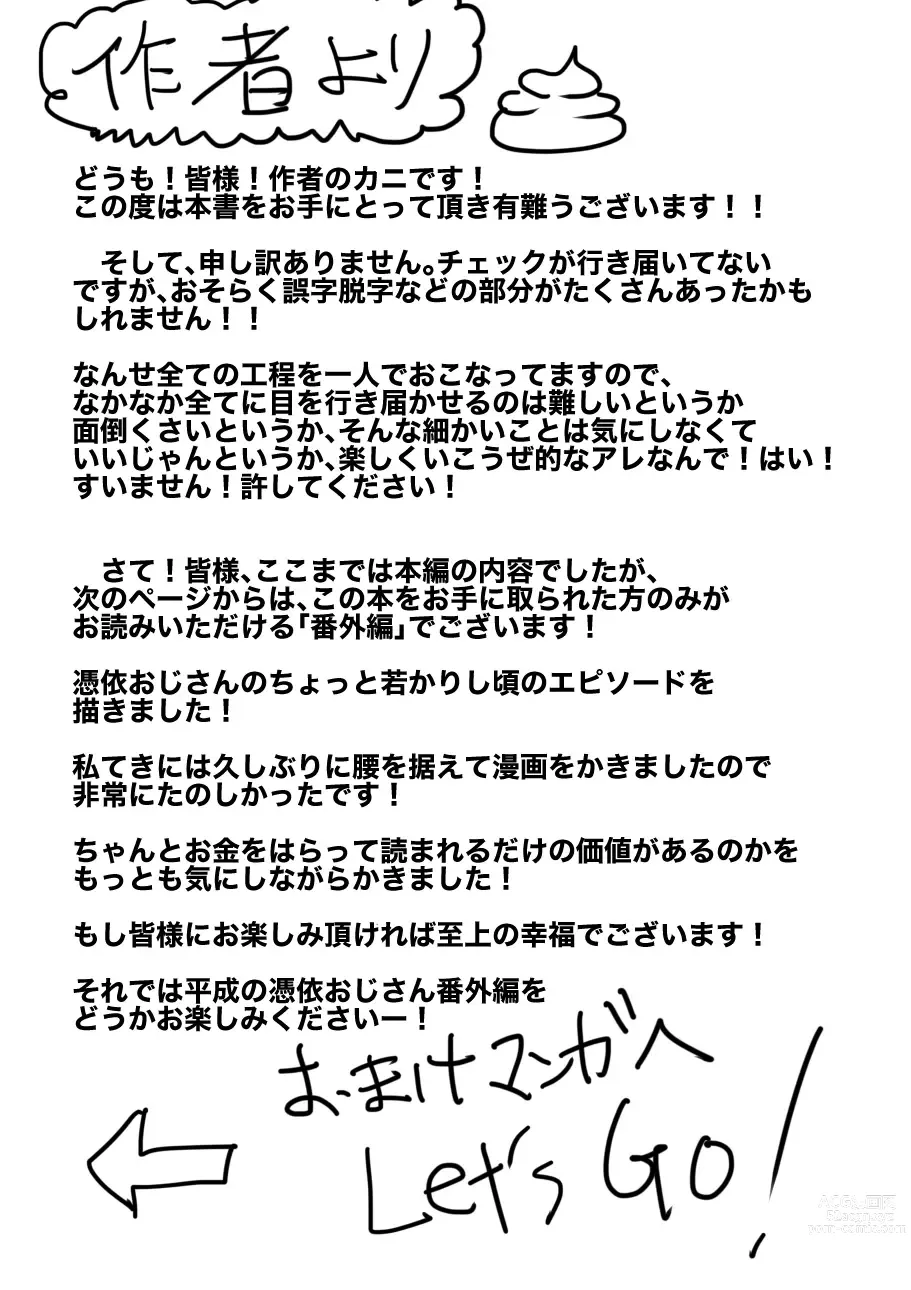 作者より
どうも！皆様！作者のカニです！
この度は本書をお手にとって頂き有難うございます！！
そして、申し訳ありません。チェックが行き届いてない
ですが、おそらく誤字脱字などの部分がたくさんあったかも
しれません！！
なんせ全ての工程を一人でおこなってますので、
なかなか全てに目を行き届かせるのは難しいというか
面倒くさいというか、そんな細かいことは気にしなくて
いいじゃんというか、楽しくいこうぜ的なアレなんで！はい！
すいません！許してください！
さて！皆様、ここまでは本編の内容でしたが、
次のページからは、この本をお手に取られた方のみが
お読みいただける「番外編」でございます！
憑依おじさんのちょっと若かりし頃のエピソードを
描きました！
私てきには久しぶりに腰を据えて漫画をかきましたので
非常にたのしかったです！
ちゃんとお金をはらって読まれるだけの価値があるのかを
もっとも気にしながらかきました！
もし皆様にお楽しみ頂ければ至上の幸福でございます！
それでは平成の憑依おじさん番外編を
どうかお楽しみくださいー！
おまけマンガへ
Let's Go!